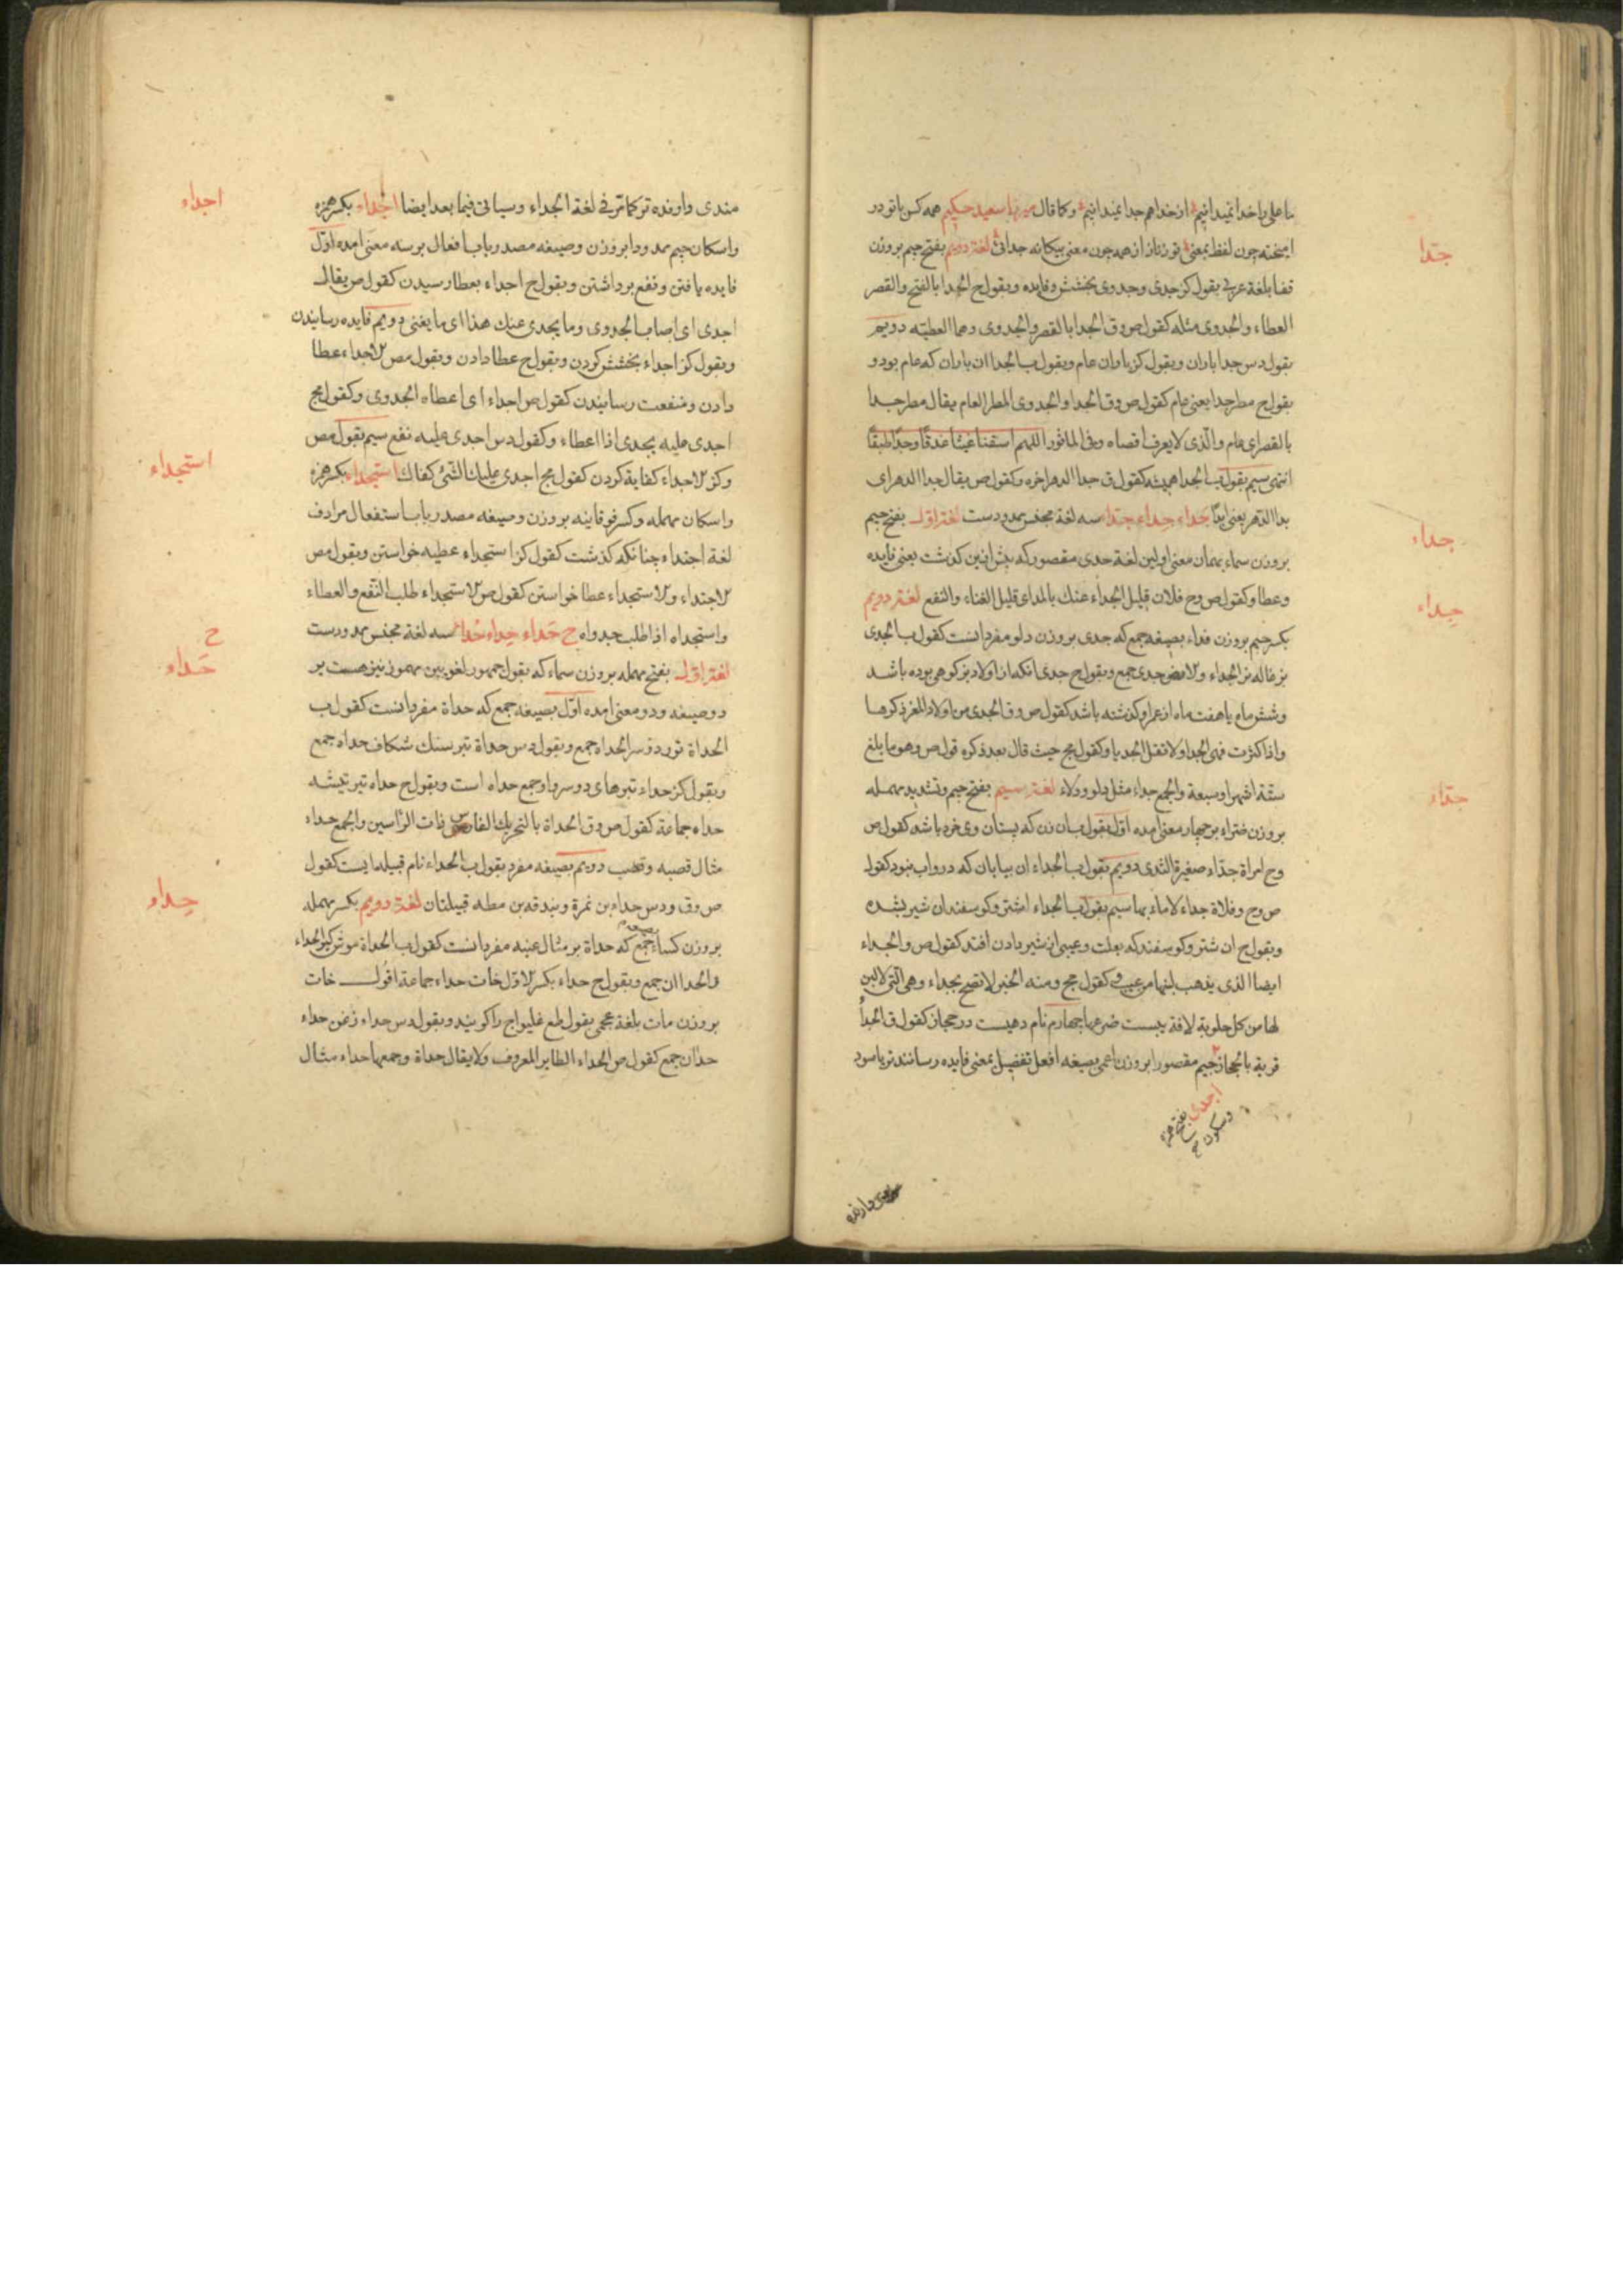 ما علی را خدا نمیدانیم از خدا هم جدا نمیدانیم وکما قال میرزا سعید حکیم همه کس با تو در
جدا
امیخته چون لفظ بمعنی تو زناز از همه چون معنی بیکانه جدائی لغة دویم بفتح جیم بروزن
قفا بلغة عربی بقول کز جدی وجدوی بخشش وفایده وبقول ح الجدا بالفتح والقصر
العطاء والجدوی مثله کقول ص وق الجدا بالقصر والجدوی وهما العطیه دویم
بقول دس جدا باران وبقول کز باران عام وبقول ب الجدا ان باران که عام بود و
بقول ح مطر جدا یعنی عام کقول ص وق الجدا والجدوی المطر العام یقال مطر جدا
بالقصر ای عام والذی لا یعرف اقصاه وفی الماثور اللهم اسقنا غیثا غدقا وجدا طبقا
انتهی سیم بقول ب الجدا همیشه کقول ق جدا الدهر اخره وکقول ص یقال جدا الدهر ای
بدا الدهر یعنی ابدا جداء جداء جداء سه لغة مجنس ممدودست لغة اول بفتح جیم
جداء
بروزن سماء بهمان معنی اولین لغة جدی مقصور که پیش ازین کذشت یعنی فایده
وعطا وکقول ص وح فلان قلیل الجداء عنک بالمد ای قلیل الغناء والنفع لغة دویم
جداء
بکسر جیم بروزن فداء بصیغه جمع که جدی بروزن دلو مفرد انست کقول ب الجدی
بزغاله نر الجداء ولا مض جدی جمع وبقول ح جدی انکه از اولاد بز کوهی بوده باشد
وشش ماه یا هفت ماه از عمر او کذشته باشد کقول ص وق الجدی من اولاد المعز ذکورها
واذا کثرت فهی الجدا ولا تقل الجدایا وکقول مج حیث قال بعد ذکره قول ص وهو ما بلغ
ستة اشهر او سبعة والجمع جداء مثل دلو ودلاء لغة سیم بفتح جیم وتشدید مهمله
جداء
بروزن ضراء بر چهار معنی امده اول بقول ب ان زن که پستان وی خرد باشد کقول ص
وح امراة جداء صغیرة الثدی دویم بقول ب الجداء ان بیابان که درو اب نبود کقول
ص وح وفلاة جداء لا ماء بها سیم بقول ب الجداء اشتر وکوسفندان شیر بشده
وبقول ح ان شتر وکوسفند که بعلت وعیبی از شیر دادن افتد کقول ص والجداء
ایضا الذی یذهب لبنها من عیب وکقول مج ومنه الخبر لا تضح بجداء وهی التی لا لبن
لها من کل حلوبة لافة یبست ضرعها چهارم نام دهیست در حجاز کقول ق الجداء
قریة بالحجاز جیم مقصور ابروزن اعمی بصیغه افعل تفضیل بمعنی فایده رسانندتر یا سود
اجدی بفتح همزه
وسکون ج
مندی وارنده
مندی وارنده تر کما مر فی لغة الجداء وسیاتی فیما بعد ایضا اجداء بکسر همزه
اجداء
واسکان جیم ممدودا بروزن وصیغه مصدر باب افعال بر سه معنی امده اول
فایده یافتن ونفع برداشتن وبقول ح اجداء بعطا رسیدن کقول ص یقال
اجدی ای اصاب الجدوی وما یجدی عنک هذا ای ما یغنی دویم فایده رسانیدن
وبقول کز اجداء بخشش کردن وبقول ح عطا دادن وبقول مص الاجداء عطا
دادن ومنفعت رسانیدن کقول ص اجداء ای اعطاه الجدوی وکقول مج
اجدی علیه یجدی اذا اعطاء وکقول دس اجدی علیه نفع سیم بقول مص
وکز الاجداء کفایة کردن کقول مج اجدی علیک الشئ کفاک استجداء بکسر همزه
استجداء
واسکان مهمله وکسر فوقانیه بروزن وصیغه مصدر باب استفعال مرادف
لغة اجتداء چنانکه کذشت کقول کز استجداء عطیه خواستن وبقول مص
الاجتداء والاستجداء عطا خواستن کقول ص الاستجداء طلب النفع والعطاء
واستجداه اذا طلب جدواه ح حداء حداء حداء سه لغة مجنس ممدودست
ح
حداء
لغة اول بفتح مهمله بروزن سماء که بقول جمهور لغویین مهموز نیز هست بر
دو صیغه ودو معنی امده اول بصیغه جمع که حداة مفرد انست کقول ب
الحداة تبر دو سر الحداه جمع وبقول دس حداة تبر سنک شکاف حداه جمع
وبقول کز حداء تبرهای دو سر واو جمع حداه است وبقول ح حداه تبر تیشه
حداه جماعة کقول ص وق الحداة بالتحریک الفاس ذات الراسین والجمع حداء
مثال قصبه وقصب دویم بصیغه مفرد بقول ب الحداء نام قبیله ایست کقول
ص وق ودس حداء بن نمرة وبندقه بن مطه قبیلتان لغة دویم بکسر مهمله
حداء
بروزن کساء بصیغه جمع که حداة بر مثال عنبه مفرد انست کقول ب الحداة موش کیر الحداء
والحداان جمع وبقول ح حداء بکسر الاول خات حداء جماعة اقول خات
بروزن مات بلغة عجمی بقول طع غلیواج را کویند وبقول دس حداء زغن حداء
حدان جمع کقول ص الحداء الطایر المعروف ولا یقال حداة وجمعها حداء مثال